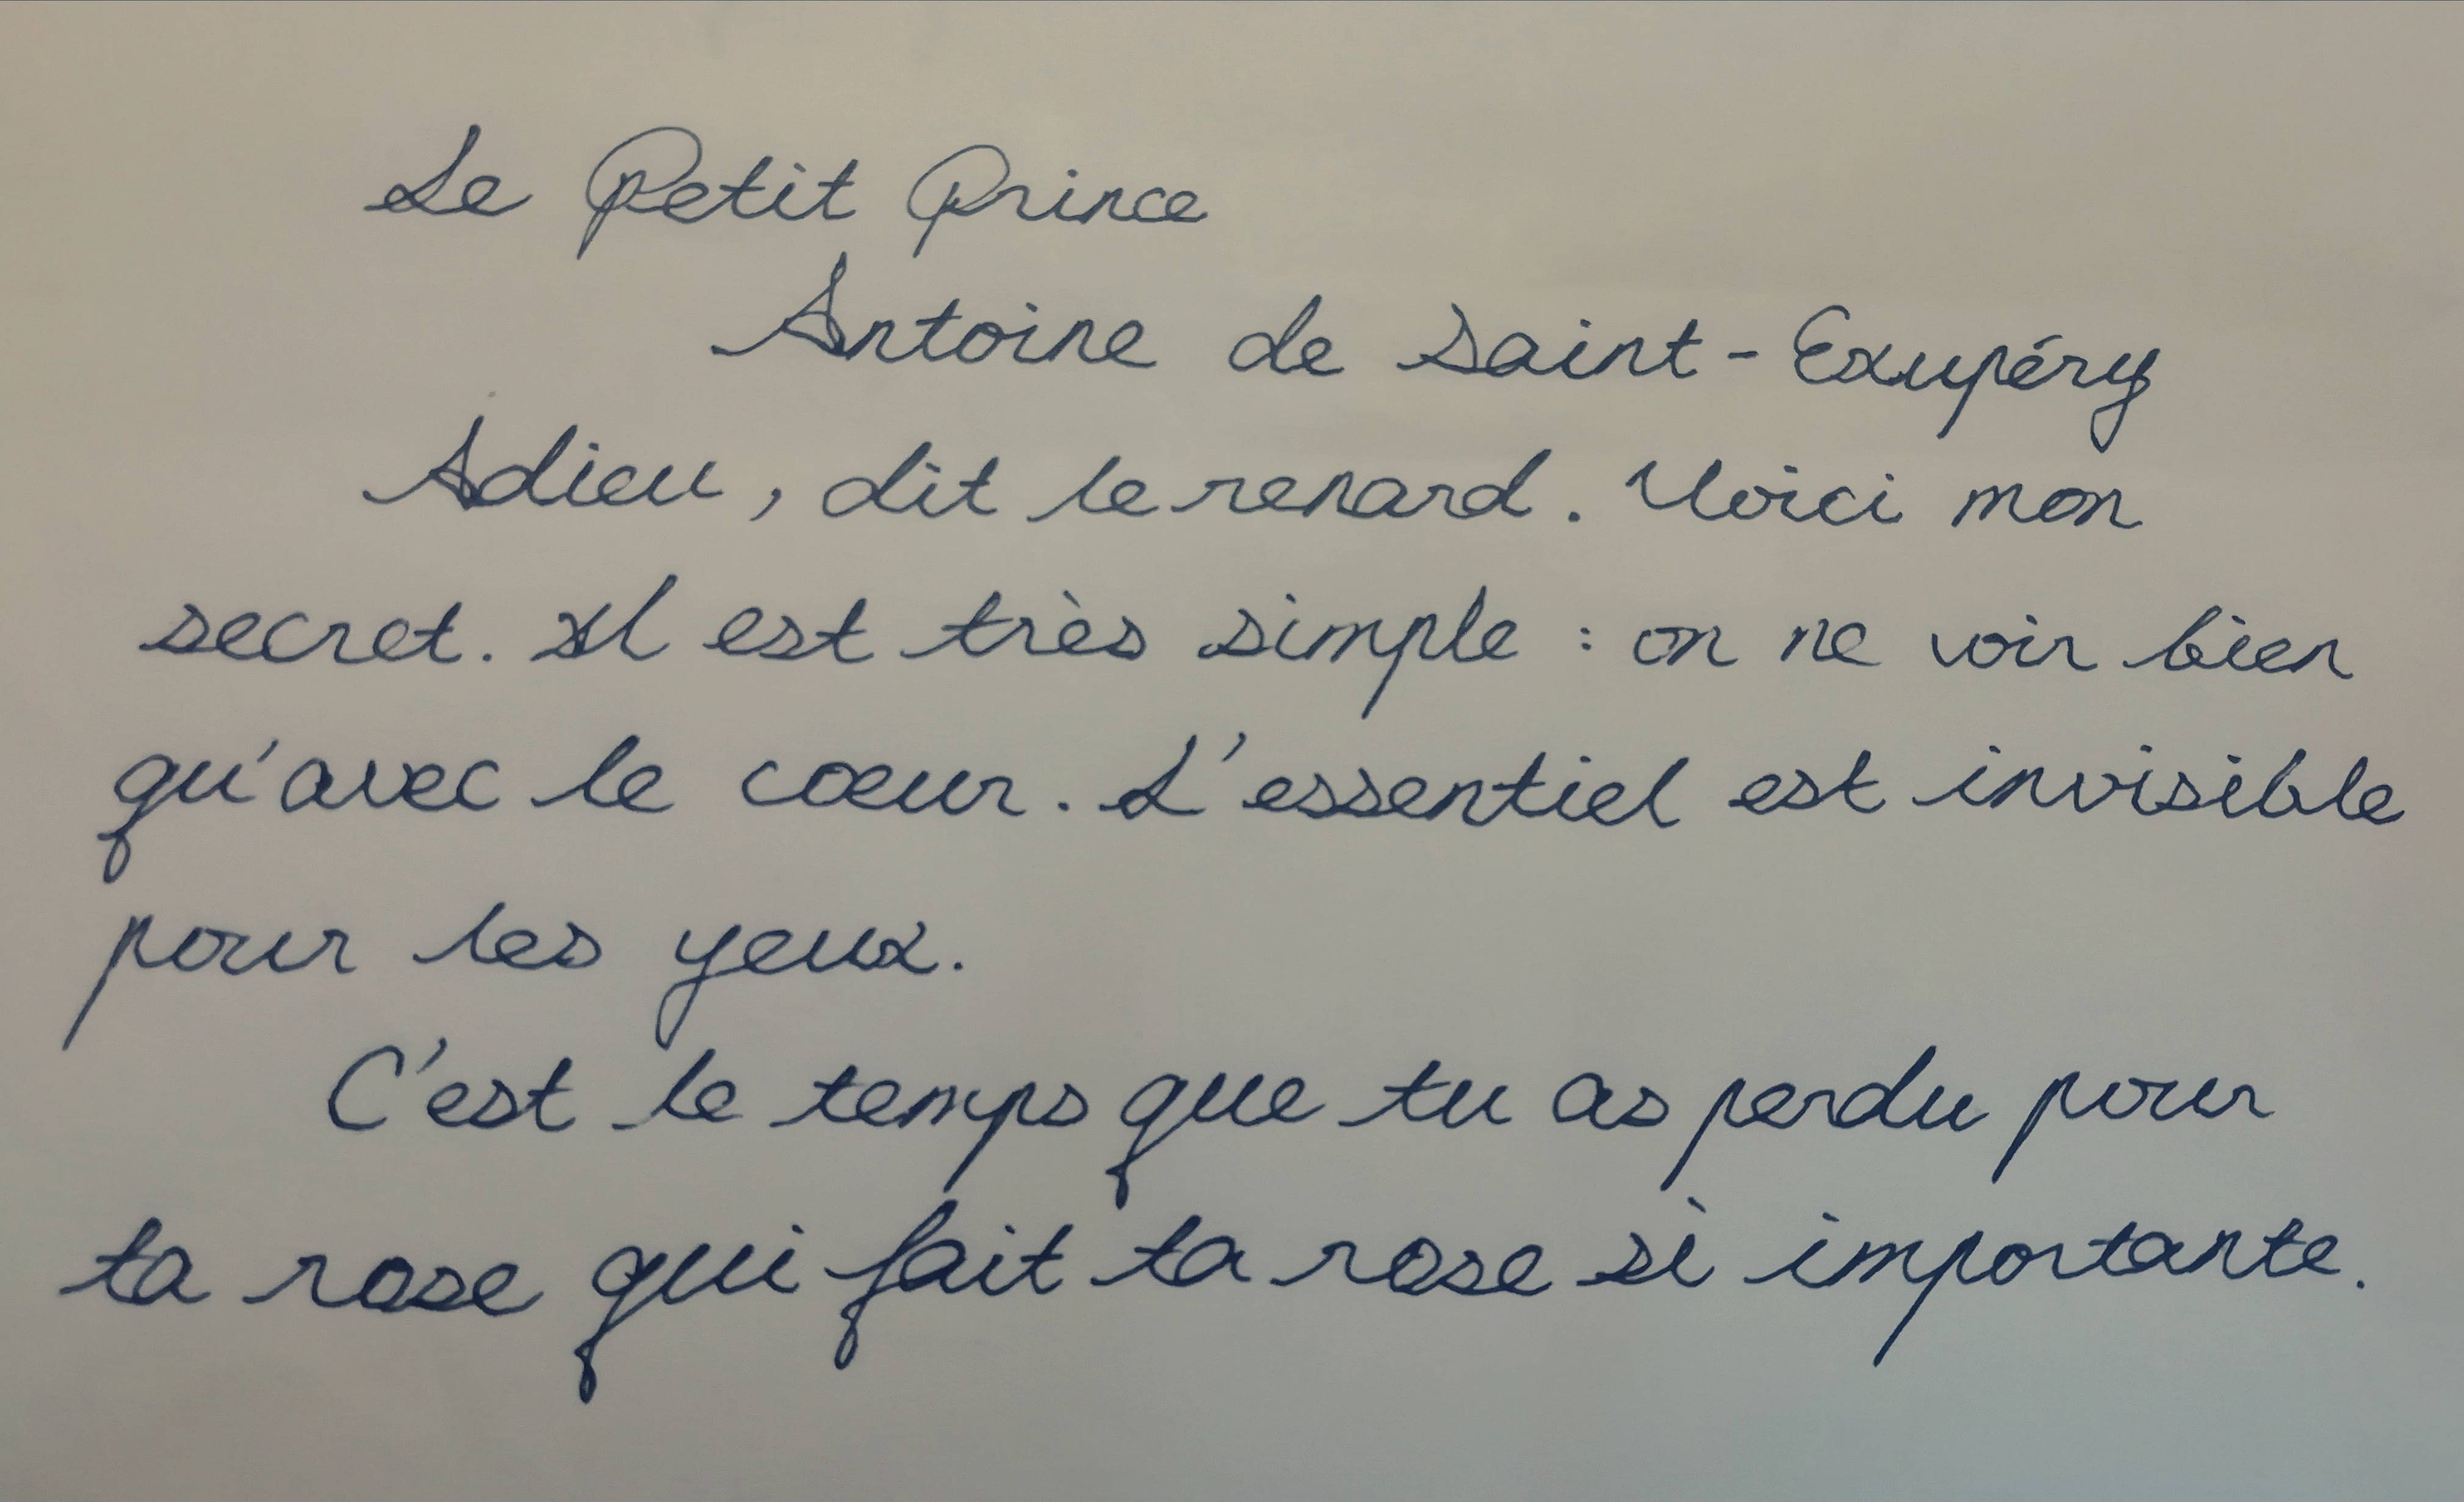 Le Petit Prince
Antoine de Saint-Exupéry
Adieu, dit le renard. Voici mon
secret. Il est très simple : on ne voir bien
qu'avec le cœur. L'essentiel est invisible
pour les yeux.
C'est le temps que tu as perdu pour
ta rose qui fait ta rose si importante.